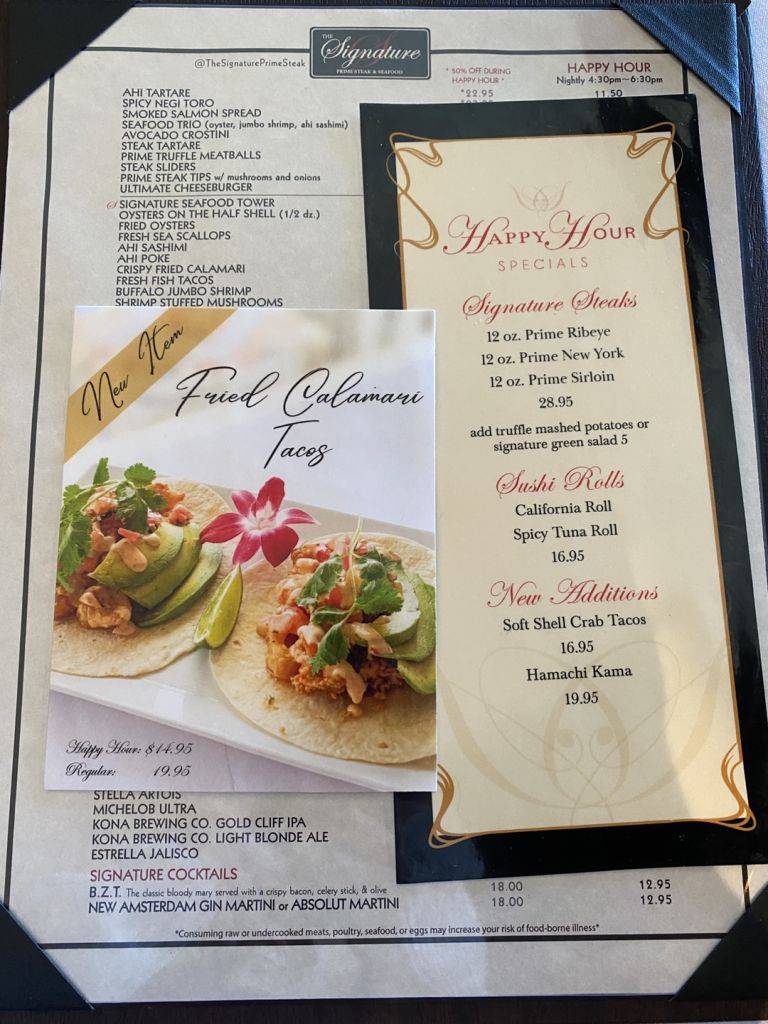 @TheSignaturePrimeSteak
THE
Signature
PRIME STEAK & SEAFOOD
* 50% OFF DURING
HAPPY HOUR *
HAPPY HOUR
Nightly 4:30pm~6:30pm
AHI TARTARE *22.95 11.50
SPICY NEGI TORO
SMOKED SALMON SPREAD
SEAFOOD TRIO (oyster, jumbo shrimp, ahi sashimi)
AVOCADO CROSTINI
STEAK TARTARE
PRIME TRUFFLE MEATBALLS
STEAK SLIDERS
PRIME STEAK TIPS w/ mushrooms and onions
ULTIMATE CHEESEBURGER
SIGNATURE SEAFOOD TOWER
OYSTERS ON THE HALF SHELL (1/2 dz.)
FRIED OYSTERS
FRESH SEA SCALLOPS
AHI SASHIMI
AHI POKE
CRISPY FRIED CALAMARI
FRESH FISH TACOS
BUFFALO JUMBO SHRIMP
SHRIMP STUFFED MUSHROOMS
New Item
Fried Calamari
Tacos
Happy Hour: $14.95
Regular: 19.95
HAPPY HOUR
SPECIALS
Signature Steaks
12 oz. Prime Ribeye
12 oz. Prime New York
12 oz. Prime Sirloin
28.95
add truffle mashed potatoes or
signature green salad 5
Sushi Rolls
California Roll
Spicy Tuna Roll
16.95
New Additions
Soft Shell Crab Tacos
16.95
Hamachi Kama
19.95
STELLA ARTOIS
MICHELOB ULTRA
KONA BREWING CO. GOLD CLIFF IPA
KONA BREWING CO. LIGHT BLONDE ALE
ESTRELLA JALISCO
SIGNATURE COCKTAILS
B.Z.T. The classic bloody mary served with a crispy bacon, celery stick, & olive 18.00 12.95
NEW AMSTERDAM GIN MARTINI or ABSOLUT MARTINI 18.00 12.95
*Consuming raw or undercooked meats, poultry, seafood, or eggs may increase your risk of food-borne illness*